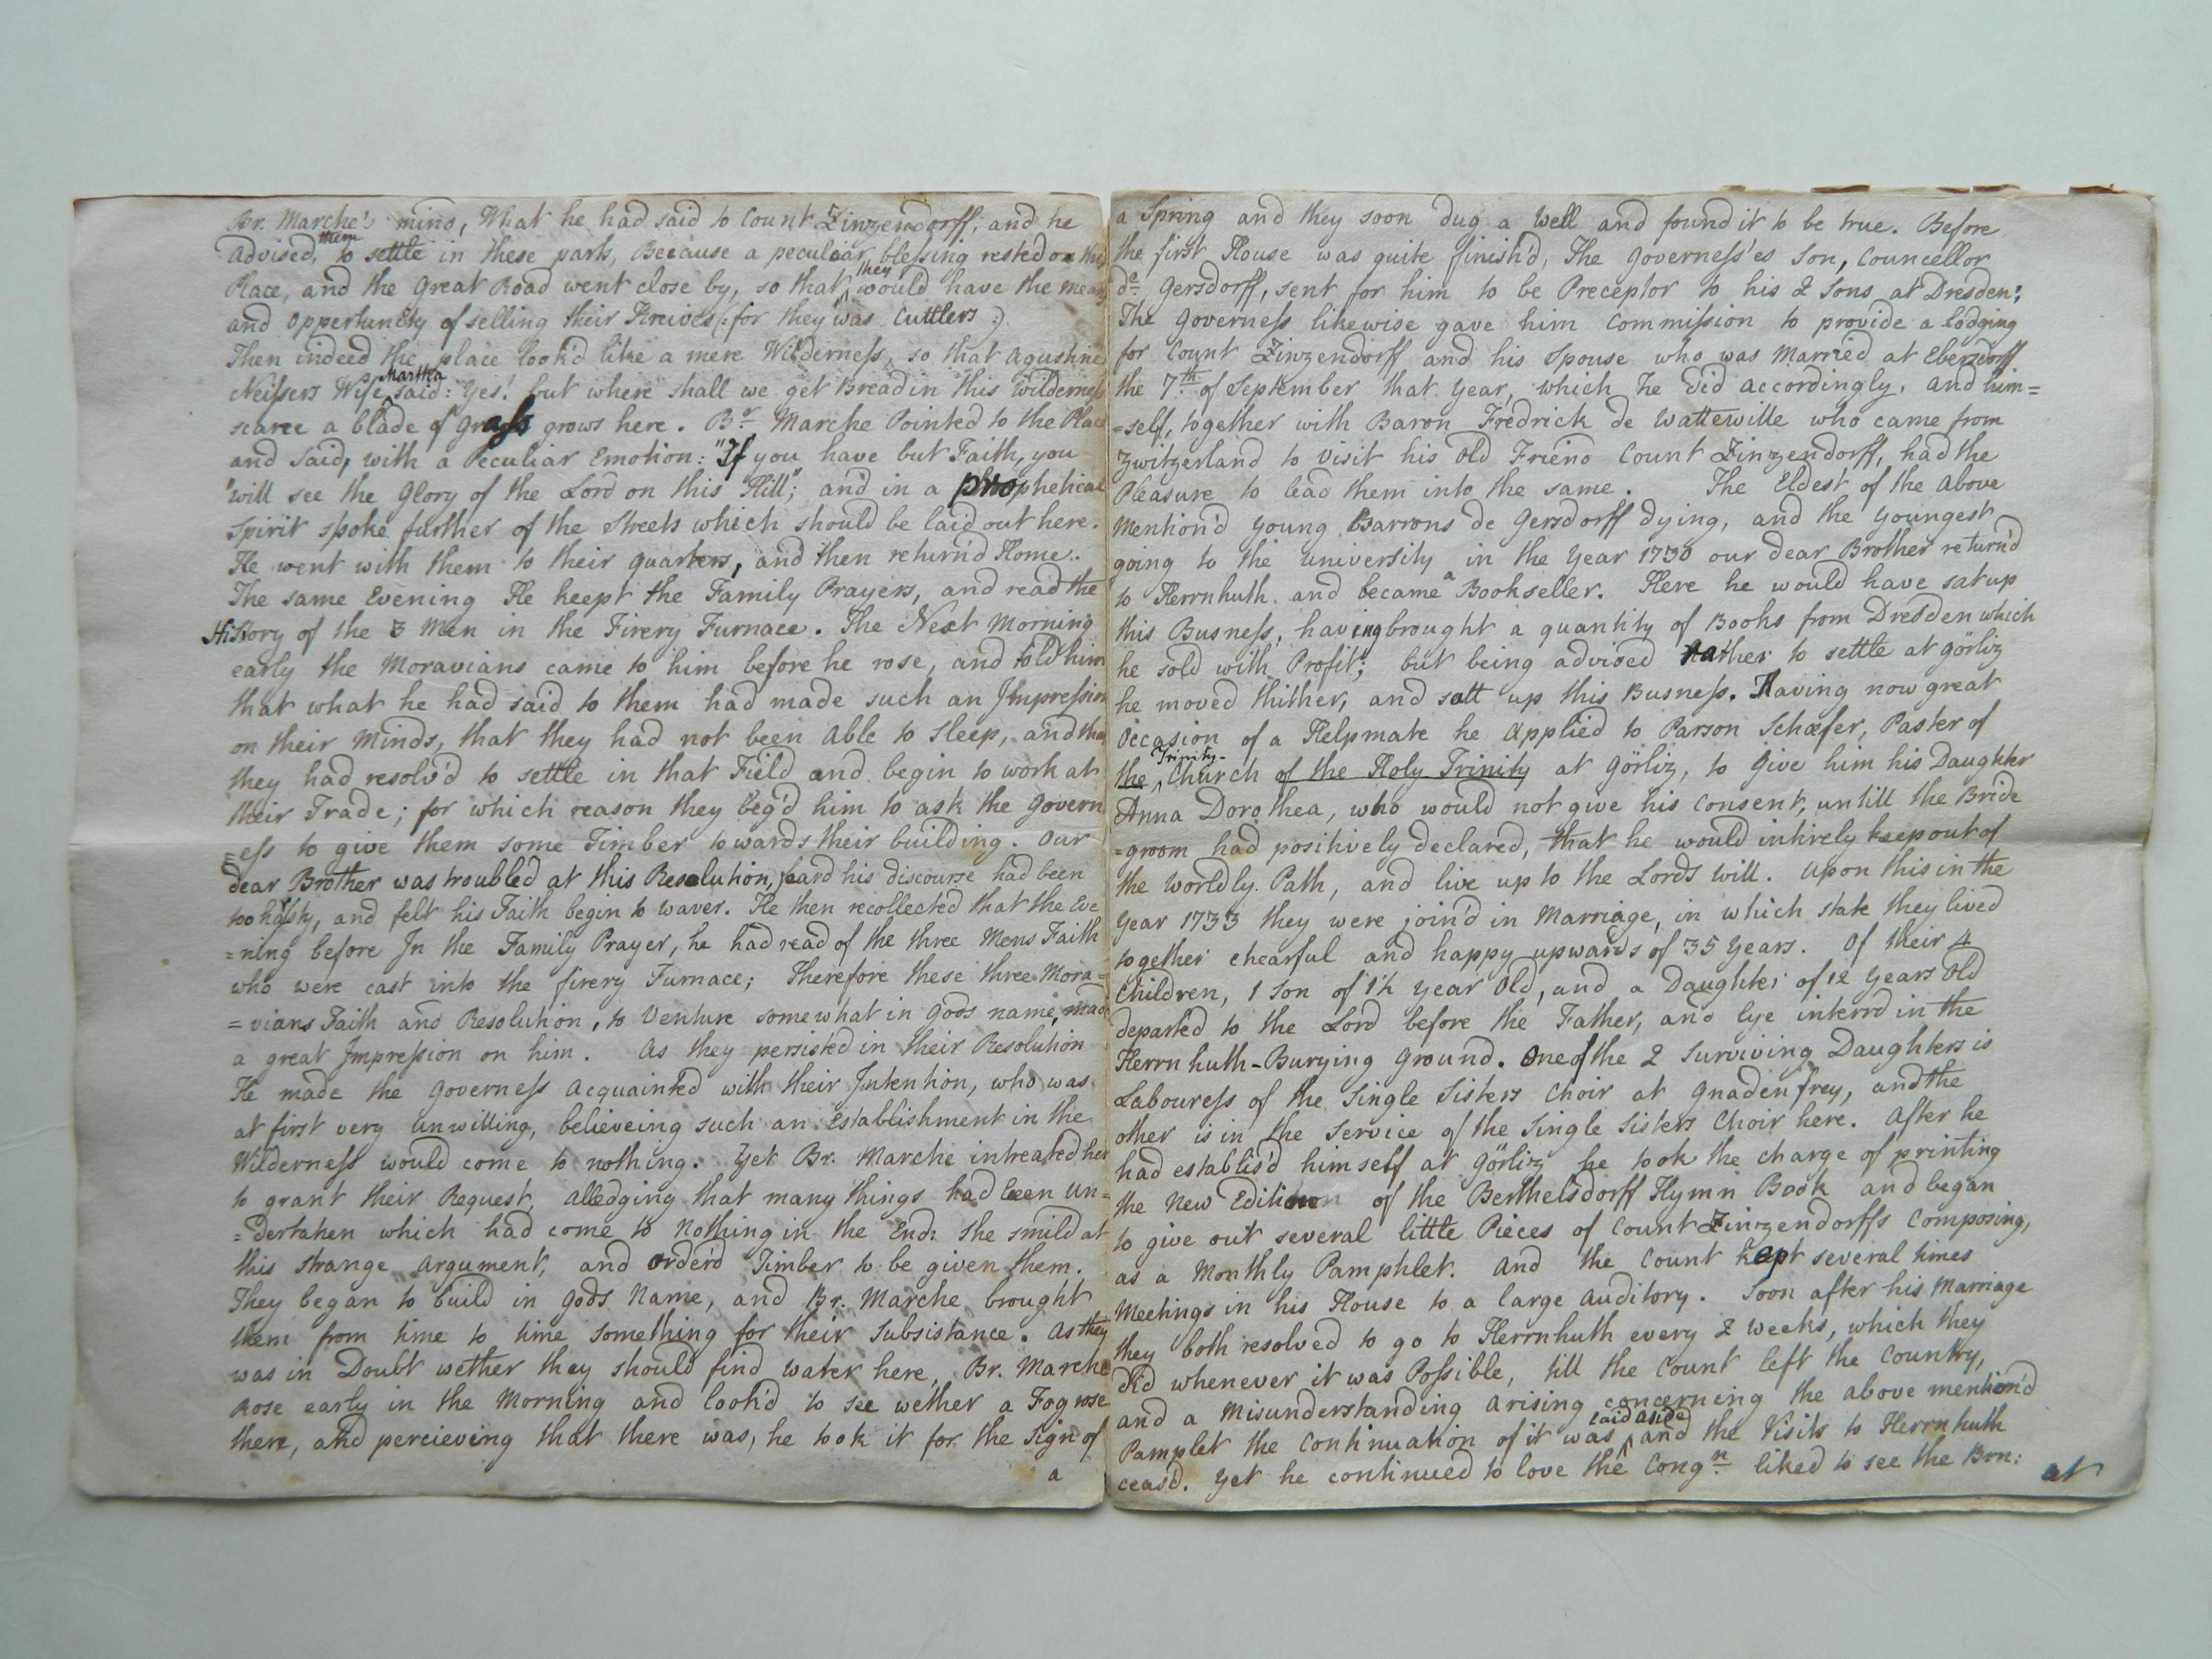 Br. Marche's mind, What he had said to Count Zinzendorff; and he
advised, them to settle in these parts, Because a peculiar blessing rested on this
Place, and the Great Road went close by, so that they would have the means
and oppertunety of selling their Kneives (: for they was Cuttlers :)
Then indeed the place look'd like a mere Wilderness, so that Agustine
Neissers Wife Martha said: Yes! but where shall we get Bread in this Wilderness
scarce a blade of grass grows here. Br. Marche Pointed to the Place
and said, with a Peculiar Emotion: "If you have but Faith, you
"will see the Glory of the Lord on this Hill"; and in a prophetical
Spirit spoke further of the Streets which should be laid out here.
He went with them to their quarters, and then return'd Home.
The same Evening He keept the Family Prayers, and read the
History of the 3 Men in the Firery Furnace. The Next Morning
early the Moravians came to him before he rose, and told him
that what he had said to them had made such an Impression
on their Minds, that they had not been Able to Sleep, and that
they had resolv'd to settle in that Field and begin to work at
their Trade; for which reason they beg'd him to ask the Govern
=ess to give them some Timber towards their building. Our
dear Brother was troubled at this Resolution, feard his discourse had been
too hasty, and felt his Faith begin to waver. He then recollected that the Eve
=ning before In the Family Prayer, he had read of the three Mens Faith
who were cast into the firery Furnace; Therefore these three Mora=
=vians Faith and Resolution, to Venture somewhat in Gods name, made
a great Impression on him. As they persisted in their Resolution
He made the Governess Acquainted with their Intention, who was
at first very Unwilling, believeing such an Establishment in the
Wilderness would come to nothing. Yet Br. Marche intreated her
to grant their Request, Alledging that many things had been Un=
=dertaken which had come to Nothing in the End: She smild at
this strange Argument, and order'd Timber to be given them.
They began to build in Gods Name, and Br. Marche brought
them from time to time something for their Subsistance. As they
was in Doubt wether they should find water here, Br. Marche
Rose early in the Morning and look'd to see wether a Fog rose
there, and percieveing that there was, he took it for the Sign of
a
a Spring and they soon dug a Well and found it to be true. Before
the first House was quite finish'd, The Governess'es Son, Councellor
de Gersdorff, sent for him to be Preceptor to his 2 Sons at Dresden;
The Governess likewise gave him Commission to provide a lodging
for Count Zinzendorff and his Spouse who was Married at Ebersdorff
the 7th of September that Year, which he did accordingly. And him=
=self, together with Baron Fredrick de Wattewille who came from
Zwitzerland to Visit his Old Friend Count Zinzendorff, had the
Pleasure to lead them into the same. The Eldest of the Above
Mention'd Young Barrons de Gersdorff dying, and the Youngest
going to the University in the Year 1730 our dear Brother return'd
to Herrnhuth and became a Bookseller. Here he would have sat up
this Busness, having brought a quantity of Books from Dresden which
he sold with Profit; but being advised rather to settle at Görliz
he moved thither, and satt up this Busness. Having now great
Occasion of a Helpmate he Applied to Parson Schæfer, Paster of
the Trinity- Church of the Holy Trinity at Görliz, to Give him his Daughter
Anna Dorothea, who would not give his Consent, untill the Bride
=groom had positively declared, that he would intirely keep out of
the Worldly Path, and live up to the Lords Will. Upon this in the
Year 1733 they were join'd in Marriage, in which state they lived
together chearful and happy upwards of 35 Years. Of their 4
Children, 1 Son of 1½ Year Old, and a Daughter of 12 Years Old
departed to the Lord before the Father, and lye interrd in the
Herrnhuth-Burying Ground. One of the 2 Surviving Daughters is
Labouress of the Single Sisters Choir at Gnadenfrey, and the
other is in the Service of the Single Sisters Choir here. After he
had establis'd himself at Görliz he took the Charge of printing
the New Edition of the Berthelsdorff Hymn Book and began
to give out several little Pieces of Count Zinzendorffs Composing,
as a Monthly Pamphlet. And the Count kept several times
Meetings in his House to a large Auditory. Soon after his Marriage
they both resolved to go to Herrnhuth every 2 Weeks, which they
did whenever it was Possible, till the Count left the Country,
and a Misunderstanding Arising concerning the above mention'd
Pamplet the Continuation of it was laid aside and the Visits to Herrnhuth
ceas'd. Yet he continued to love the Congn. liked to see the Brn:
at